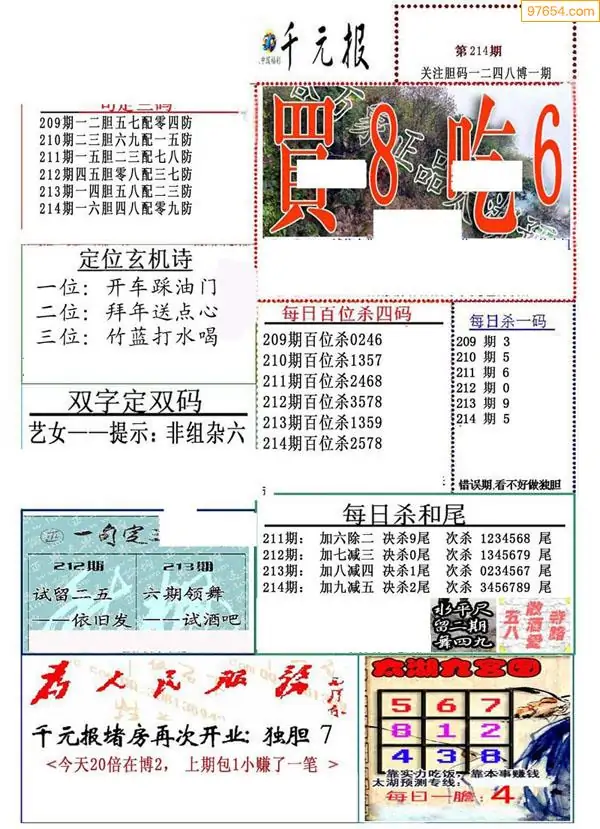 97654.com
中国福彩
千元报
第214期
关注胆码一二四八博一期
209期一二胆五七配零四防
210期二三胆六九配一五防
211期一五胆二三配七八防
212期四五胆零八配三七防
213期一四胆五八配二三防
214期一六胆四八配零九防
買8吃6
定位玄机诗
一位：开车踩油门
二位：拜年送点心
三位：竹蓝打水喝
双字定双码
艺女——提示：非组杂六
每日百位杀四码
209期百位杀0246
210期百位杀1357
211期百位杀2468
212期百位杀3578
213期百位杀1359
214期百位杀2578
每日杀一码
209 期 3
210 期 5
211 期 6
212 期 0
213 期 9
214 期 5
错误期,看不好做独胆
每日杀和尾
211期： 加六除二 决杀9尾 次杀 1234568 尾
212期： 加七减三 决杀0尾 次杀 1345679 尾
213期： 加八减四 决杀1尾 次杀 0234567 尾
214期： 加九减五 决杀2尾 次杀 3456789 尾
一句定
212期
试留二五
——依旧发
213期
六期领舞
——试酒吧
水平尺
留二期
舞四九
五八
为人民服务
千元报堵房再次开业：独胆 7
<今天20倍在博2， 上期包1小赚了一笔 >
太湖九宫图
5 6 7
8 1 2
4 3 8
靠实力吃饭，靠本事赚钱
太湖预测专线：
每日一胆：4